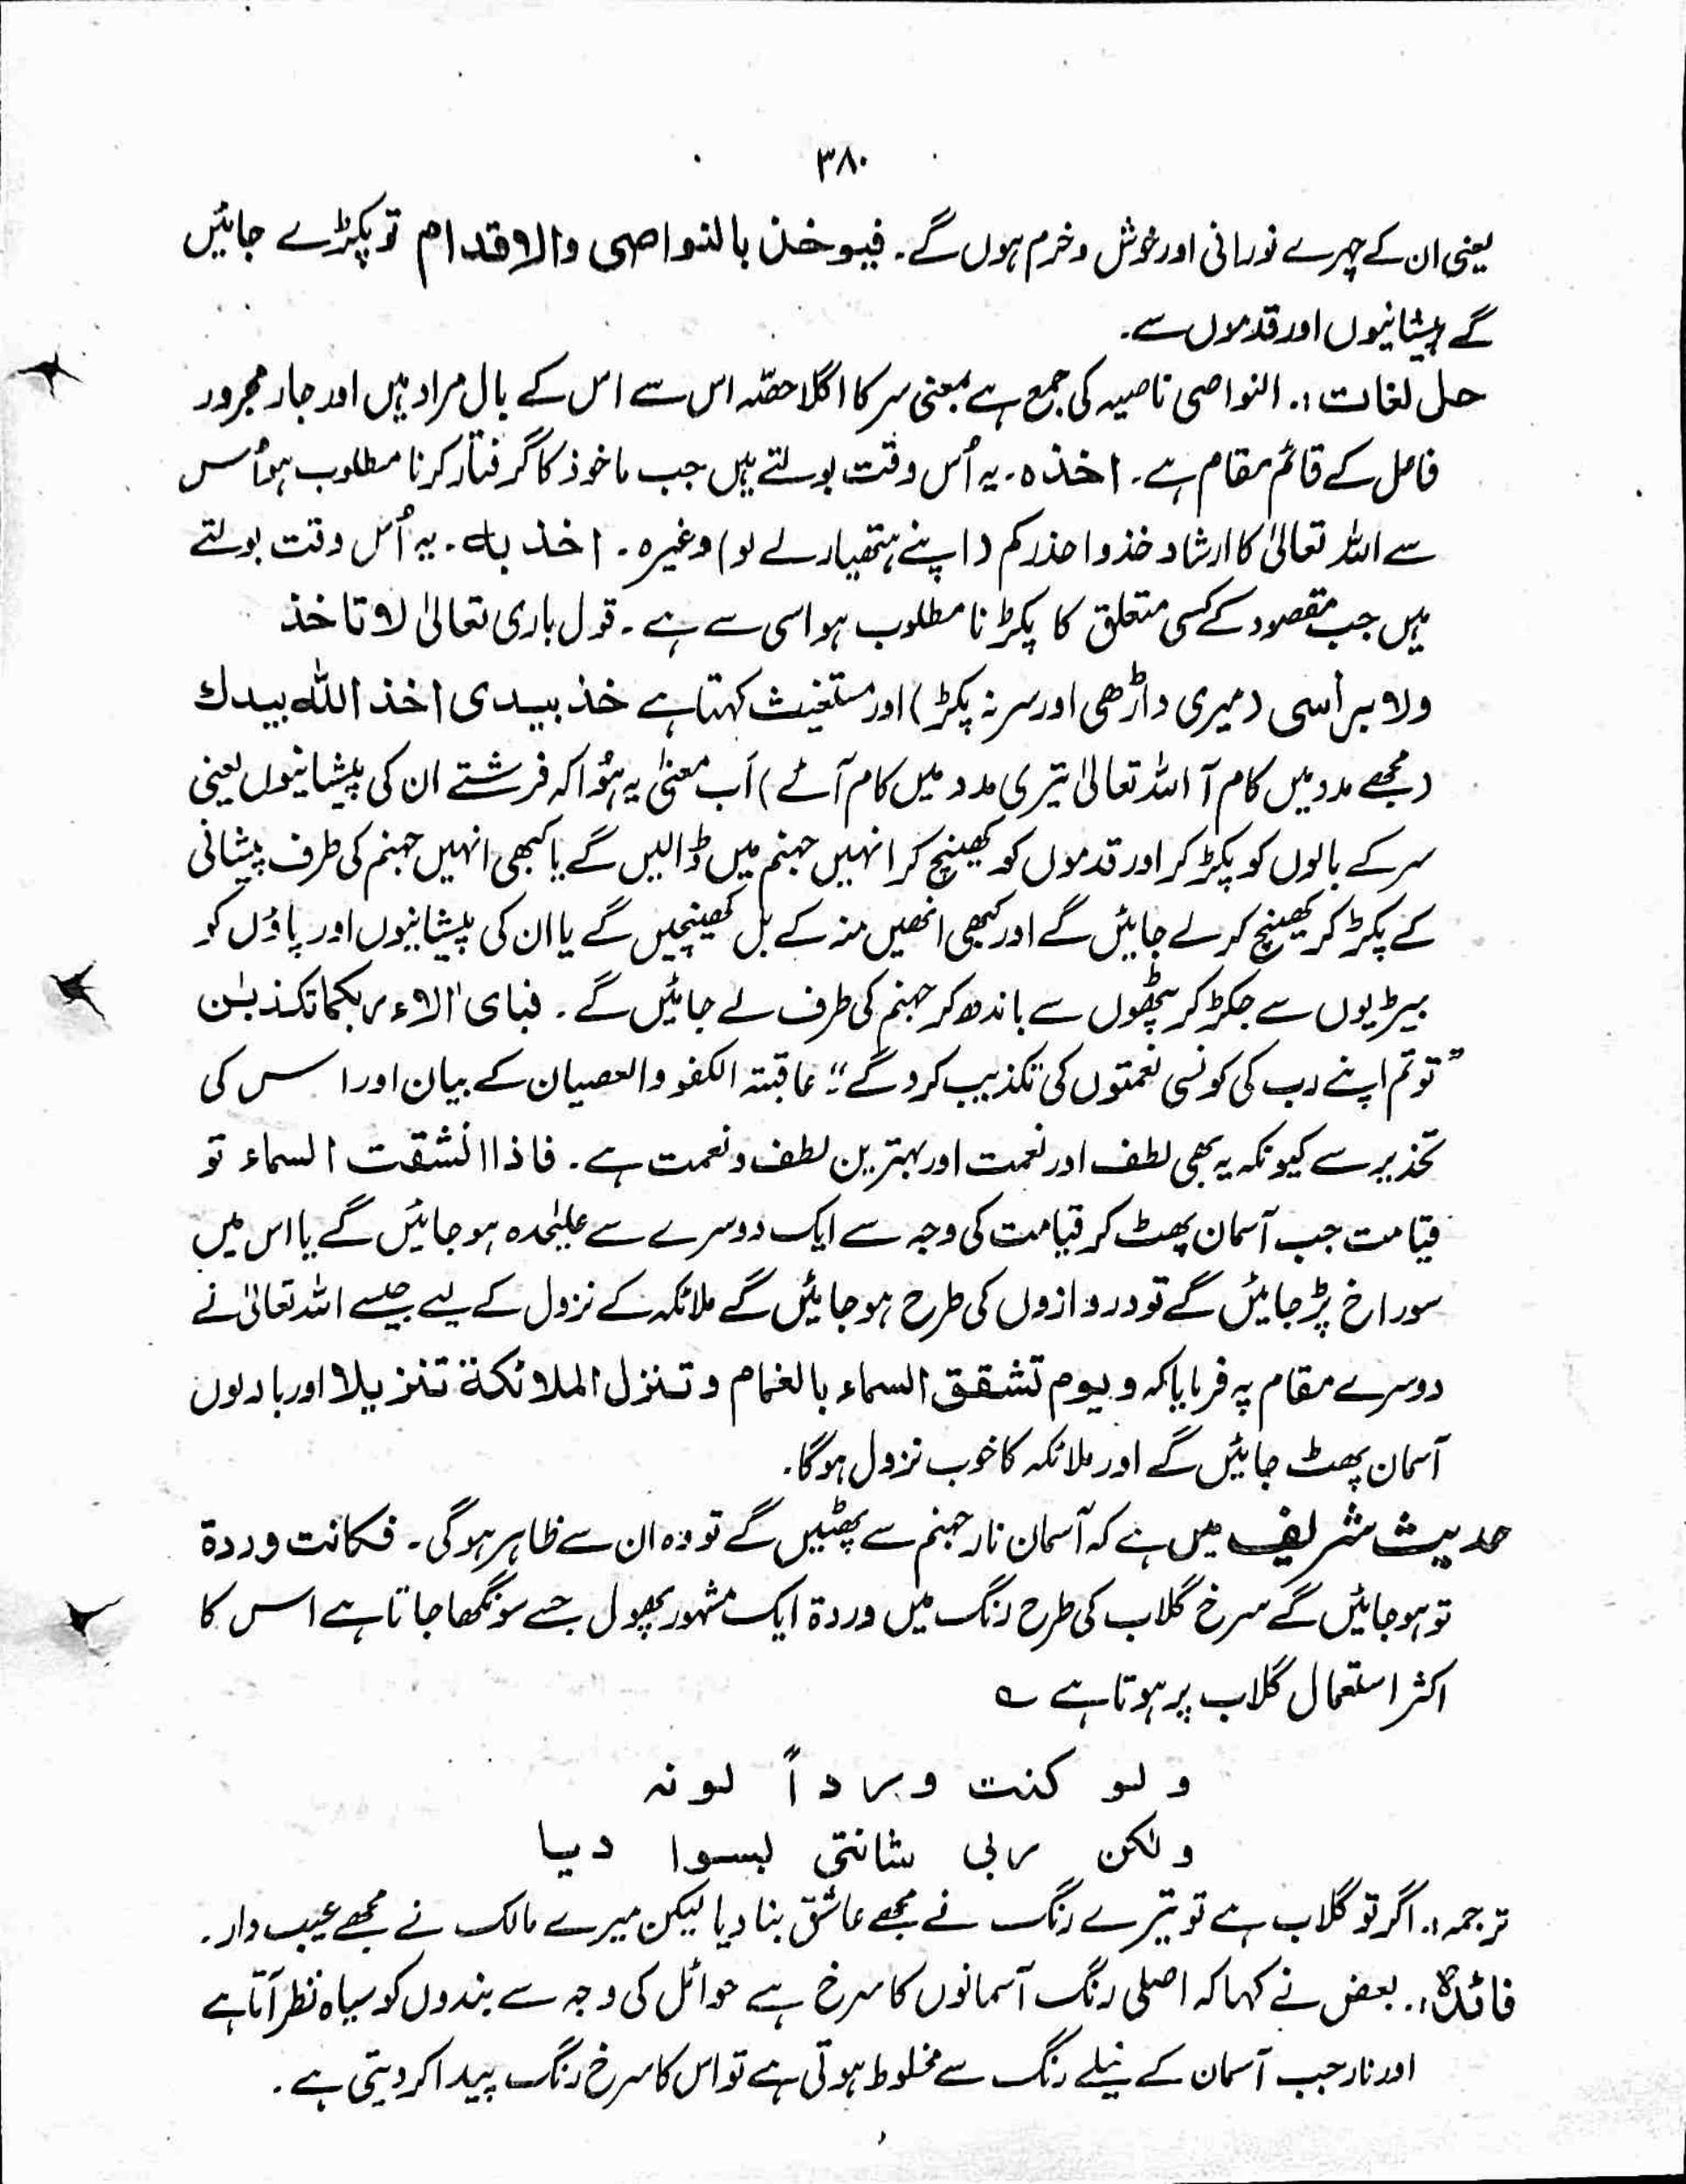 ۳۸۰
یعنی ان کے چہرے نورانی اور خوش و خرم ہوں گے۔ فیوخذ بالنواصی والاقدام تو پکڑے جائیں
گے پیشانیوں اور قدموں سے۔
حل لغات :۔ النواصی ناصیہ کی جمع ہے بمعنی سر کا اگلا حصّہ اس سے اس کے بال مراد ہیں اور جار مجرور
فاعل کے قائم مقام ہے۔ اخذہ۔ یہ اُس وقت بولتے ہیں جب ماخوذ کا گرفتار کرنا مطلوب ہو اُس
سے اللہ تعالیٰ کا ارشاد خذوا حذرکم (اپنے ہتھیار لے لو) وغیرہ۔ اخذ بہ۔ یہ اُس وقت بولتے
ہیں جب مقصود کے کسی متعلق کا پکڑنا مطلوب ہو اسی سے ہے۔ قول باری تعالیٰ لا تاخذ
ولا برأسی (میری داڑھی اور سر نہ پکڑ) اور مستغیث کہتا ہے خذ بیدی اخذ اللہ بیدك
(مجھے مدد میں کام آ اللہ تعالیٰ تیری مدد میں کام آئے) اَب معنیٰ یہ ہُوا کہ فرشتے ان کی پیشانیوں یعنی
سر کے بالوں کو پکڑ کر اور قدموں کو کھینچ کر انہیں جہنم میں ڈالیں گے یا کبھی انہیں جہنم کی طرف پیشانی
کے پکڑ کر کھینچ کر لے جائیں گے اور کبھی انھیں منہ کے بل کھینچیں گے یا ان کی پیشانیوں اور پاؤں کو
بیڑیوں سے جکڑ کر پٹھوں سے باندھ کر جہنم کی طرف لے جائیں گے۔ فبای اٰلاء ربکما تکذبٰن
"تو تم اپنے رب کی کونسی نعمتوں کی تکذیب کرو گے" عاقبتہ الکفر والعصیان کے بیان اور اس کی
تحذیر سے کیونکہ یہ بھی لطف اور نعمت اور بہترین لطف و نعمت ہے۔ فاذا انشقت السماء تو
قیامت جب آسمان پھٹ کر قیامت کی وجہ سے ایک دوسرے سے علیٰحدہ ہو جائیں گے یا اس میں
سوراخ پڑ جائیں گے تو دروازوں کی طرح ہو جائیں گے ملائکہ کے نزول کے لیے جیسے اللہ تعالیٰ نے
دوسرے مقام پہ فرمایا کہ ویوم تشقق السماء بالغمام و تنزل الملائکۃ تنزیلا اور بادلوں
آسمان پھٹ جائیں گے اور ملائکہ کا خوب نزول ہو گا۔
حدیث شریف میں ہے کہ آسمان نار جہنم سے پھٹیں گے تو وہ ان سے ظاہر ہو گی۔ فکانت وردۃ
تو ہو جائیں گے سرخ گلاب کی طرح رنگ میں وردۃ ایک مشہور پھول جسے سونگھا جاتا ہے اس کا
اکثر استعمال گلاب پر ہوتا ہے ؎
و لو کنت ورداً لونہ
ولٰکن ربی شانتی بسوا دیا
ترجمہ :۔ اگر تو گلاب ہے تو تیرے رنگ نے مجھے عاشق بنا دیا لیکن میرے مالک نے مجھے عیب دار۔
فائدہ :۔ بعض نے کہا کہ اصلی رنگ آسمانوں کا سرخ ہے حوائل کی وجہ سے بندوں کو سیاہ نظر آتا ہے
اور نار جب آسمان کے نیلے رنگ سے مخلوط ہوتی ہے تو اس کا سرخ رنگ پیدا کر دیتی ہے۔